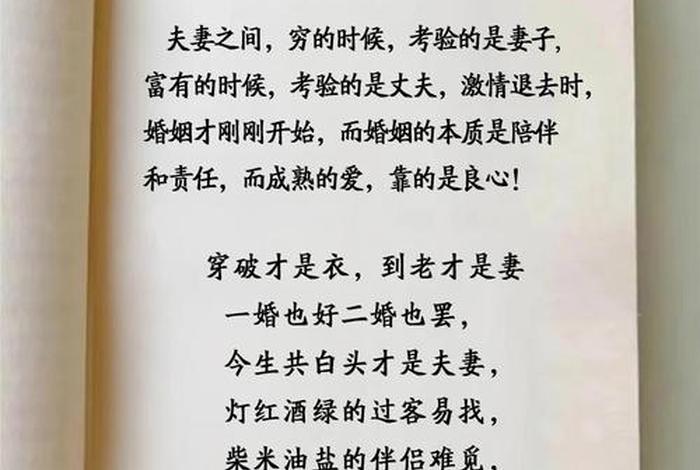 夫妻之间，穷的时候，考验的是妻子，
富有的时候，考验的是丈夫，激情退去时，
婚姻才刚刚开始，而婚姻的本质是陪伴
和责任，而成熟的爱，靠的是良心！
穿破才是衣，到老才是妻
一婚也好二婚也罢，
今生共白头才是夫妻，
灯红酒绿的过客易找，
柴米油盐的伴侣难觅，